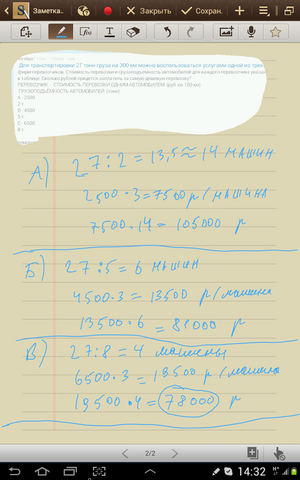 Заметка...
Закрыть
Сохран.
Для транспортировки 27 тонн груза на 300 км можно воспользоваться услугами одной из трех
фирм-перевозчиков. Стоимость перевозки и грузоподъемность автомобилей для каждого перевозчика указана
в таблице. Сколько рублей придется заплатить за самую дешевую перевозку?
ПЕРЕВОЗЧИК - СТОИМОСТЬ ПЕРЕВОЗКИ ОДНИМ АВТОМОБИЛЕМ (руб. на 100 км)
ГРУЗОПОДЪЕМНОСТЬ АВТОМОБИЛЕЙ (тонн)
А - 2500
2 т
Б - 4500
5 т
С - 6500
8 т
А) 27:2 = 13,5 ≈ 14 машин
2500·3=7500 р/машина
7500·14=105000 р
Б) 27:5=6 машин
4500·3=13500 р/машина
13500·6 =81000 р
В) 27:8=4 машины
6500·3=19500 р/машина
19500·4=78000 р
2/2
14:32